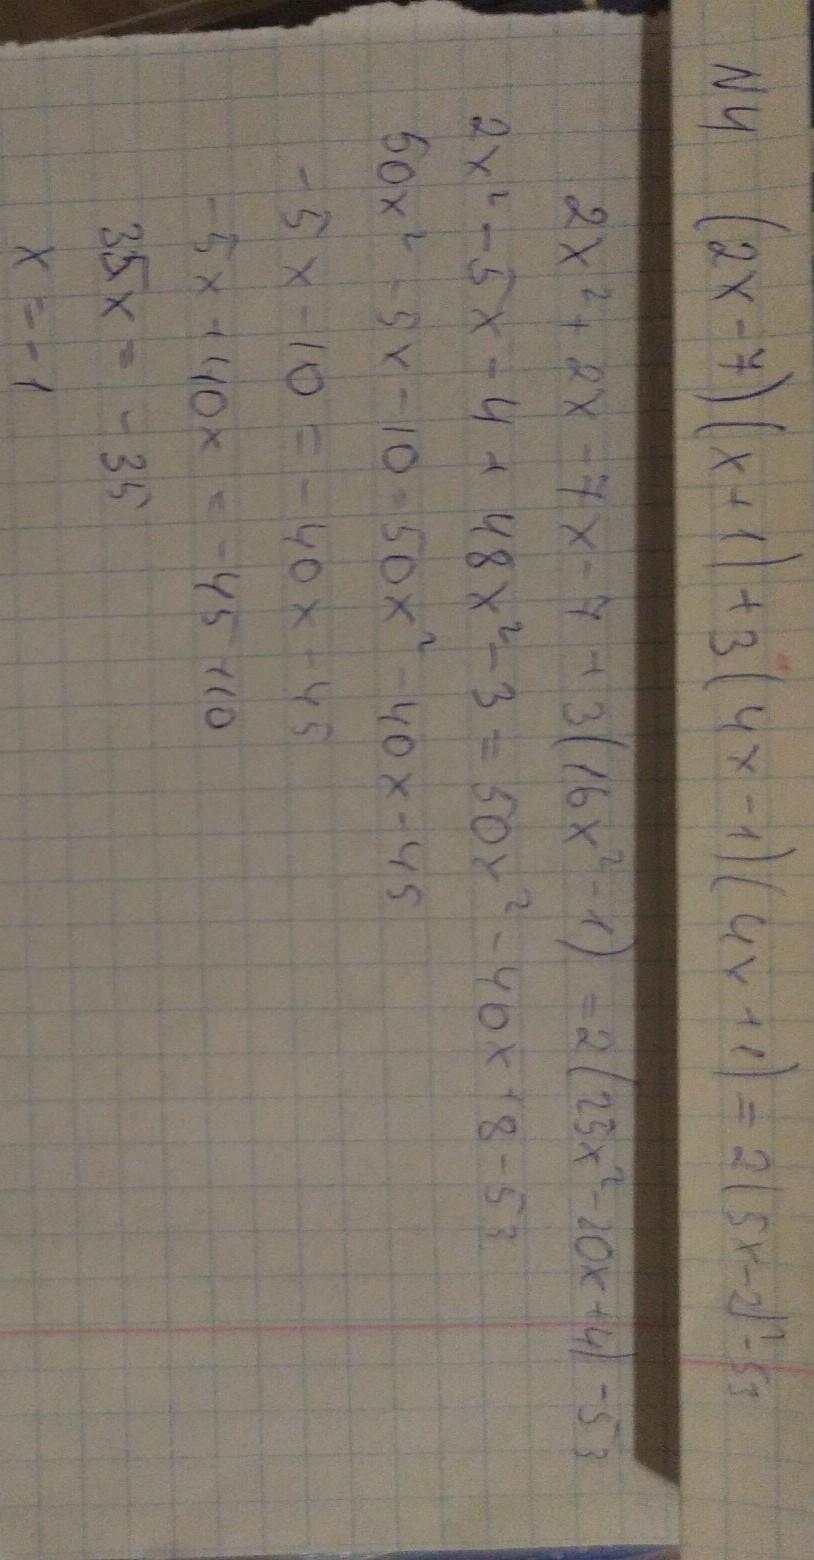 N4 (2x-7)(x+1)+3(4x-1)(4x+1)=2(5x-2)²-53
2x²+2x-7x-7+3(16x²-1)=2(25x²-20x+4)-53
2x²-5x-4+48x²-3=50x²-40x+8-53
50x²-5x-10=50x²-40x-45
-5x-10=-40x-45
-5x+40x=-45+10
35x=-35
x=-1